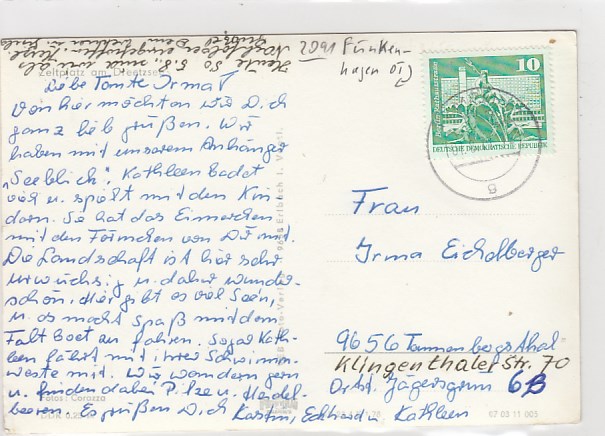 Heute so 5.8. sind wir als
2091 Funken-
hagen OT
Zeltplatz am Dreetzsee
Liebe Tante Irma!
Von hier möchten wir Dich
ganz lieb grüßen. Wir
haben mit unserem Anhänger
"Seeblick". Kathleen badet
viel u. spielt mit den Kin
dern. Sie hat das Eimerchen
mit den Förmchen von Dir mit.
Die Landschaft ist hier sehr
urwüchsig u. daher wunder-
schön. Hier gibt es viel Seen,
u. es macht Spaß mit dem
Faltboot zu fahren. Sogar Kath-
leen fährt mit ihrer Schwimm-
weste mit. Wir wandern gern
u. finden dabei Pilze u. Heidel-
beeren. Es grüßen Dich Karstn, Eckhard u. Kathleen
10
Berlin-Rathausstraße
DEUTSCHE DEMOKRATISCHE REPUBLIK
g
Frau
Irma Eichelberger
9656 Tannenbergsthal
Klingenthaler Str. 70
Ortst. Jägersgrün 6B
Fotos: Corazza
67 03 11 005